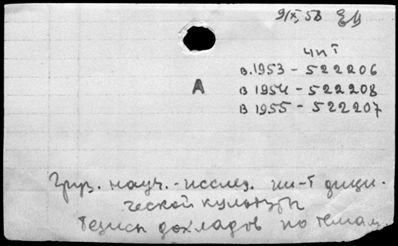 9/X, 58
чит
в.1953 - 522206
A
в 1954 - 522208
в 1955 - 522207
Груз. науч.-исслед. ин-т физи-
ческой культуры
Тезисы докладов по темам